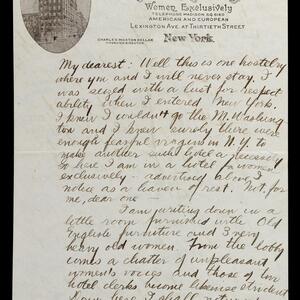 Women, Exclusively
TELEPHONE MADISON SQUARE
AMERICAN AND EUROPEAN
LEXINGTON AVE. AT THIRTIETH STREET
CHARLES WESTON DELLAR
New York.
My dearest: Well this is one hostelry
where you and I will never stay. I
was seized with a lust for respect
ability when I entered New York.
I knew I wouldn't go the M. Washing
ton and I knew surely there were
enough fearful virgins in N.Y. to
make another such hotel a necessity
So here I am in a hotel for women
exclusively - advertised above, I
notice as a haven of rest. Not, for
me, dear one
I am writing down in a
little room furnished with Old
English furniture and 3 very
heavy old women. From the lobby
comes a chatter of unpleasant
women's voices and those of two
hotel clerks become likewise strident
here I shall